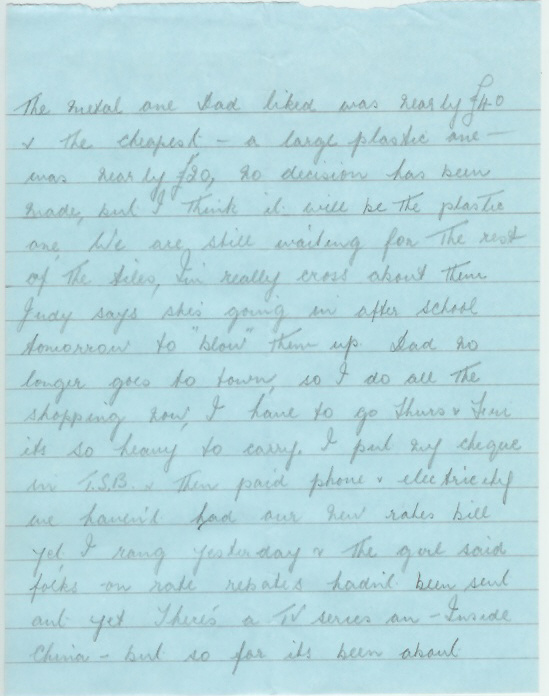 The metal one Dad liked was nearly £40
& the cheapest - a large plastic one -
was nearly £20, no decision has been
made, but I think it will be the plastic
one. We are still waiting for the rest
of the tiles, I'm really cross about them
Judy says she's going in after school
tomorrow to "blow" them up. Dad no
longer goes to town, so I do all the
shopping now, I have to go Thurs &
its so heavy to carry. I put my cheque
in T.S.B. & then paid phone & electricity
we haven't had our new rates bill
yet I rang yesterday & the girl said
folks on rate rebates hadn't been sent
out yet There's a TV series on - Inside
China - but so far its been about